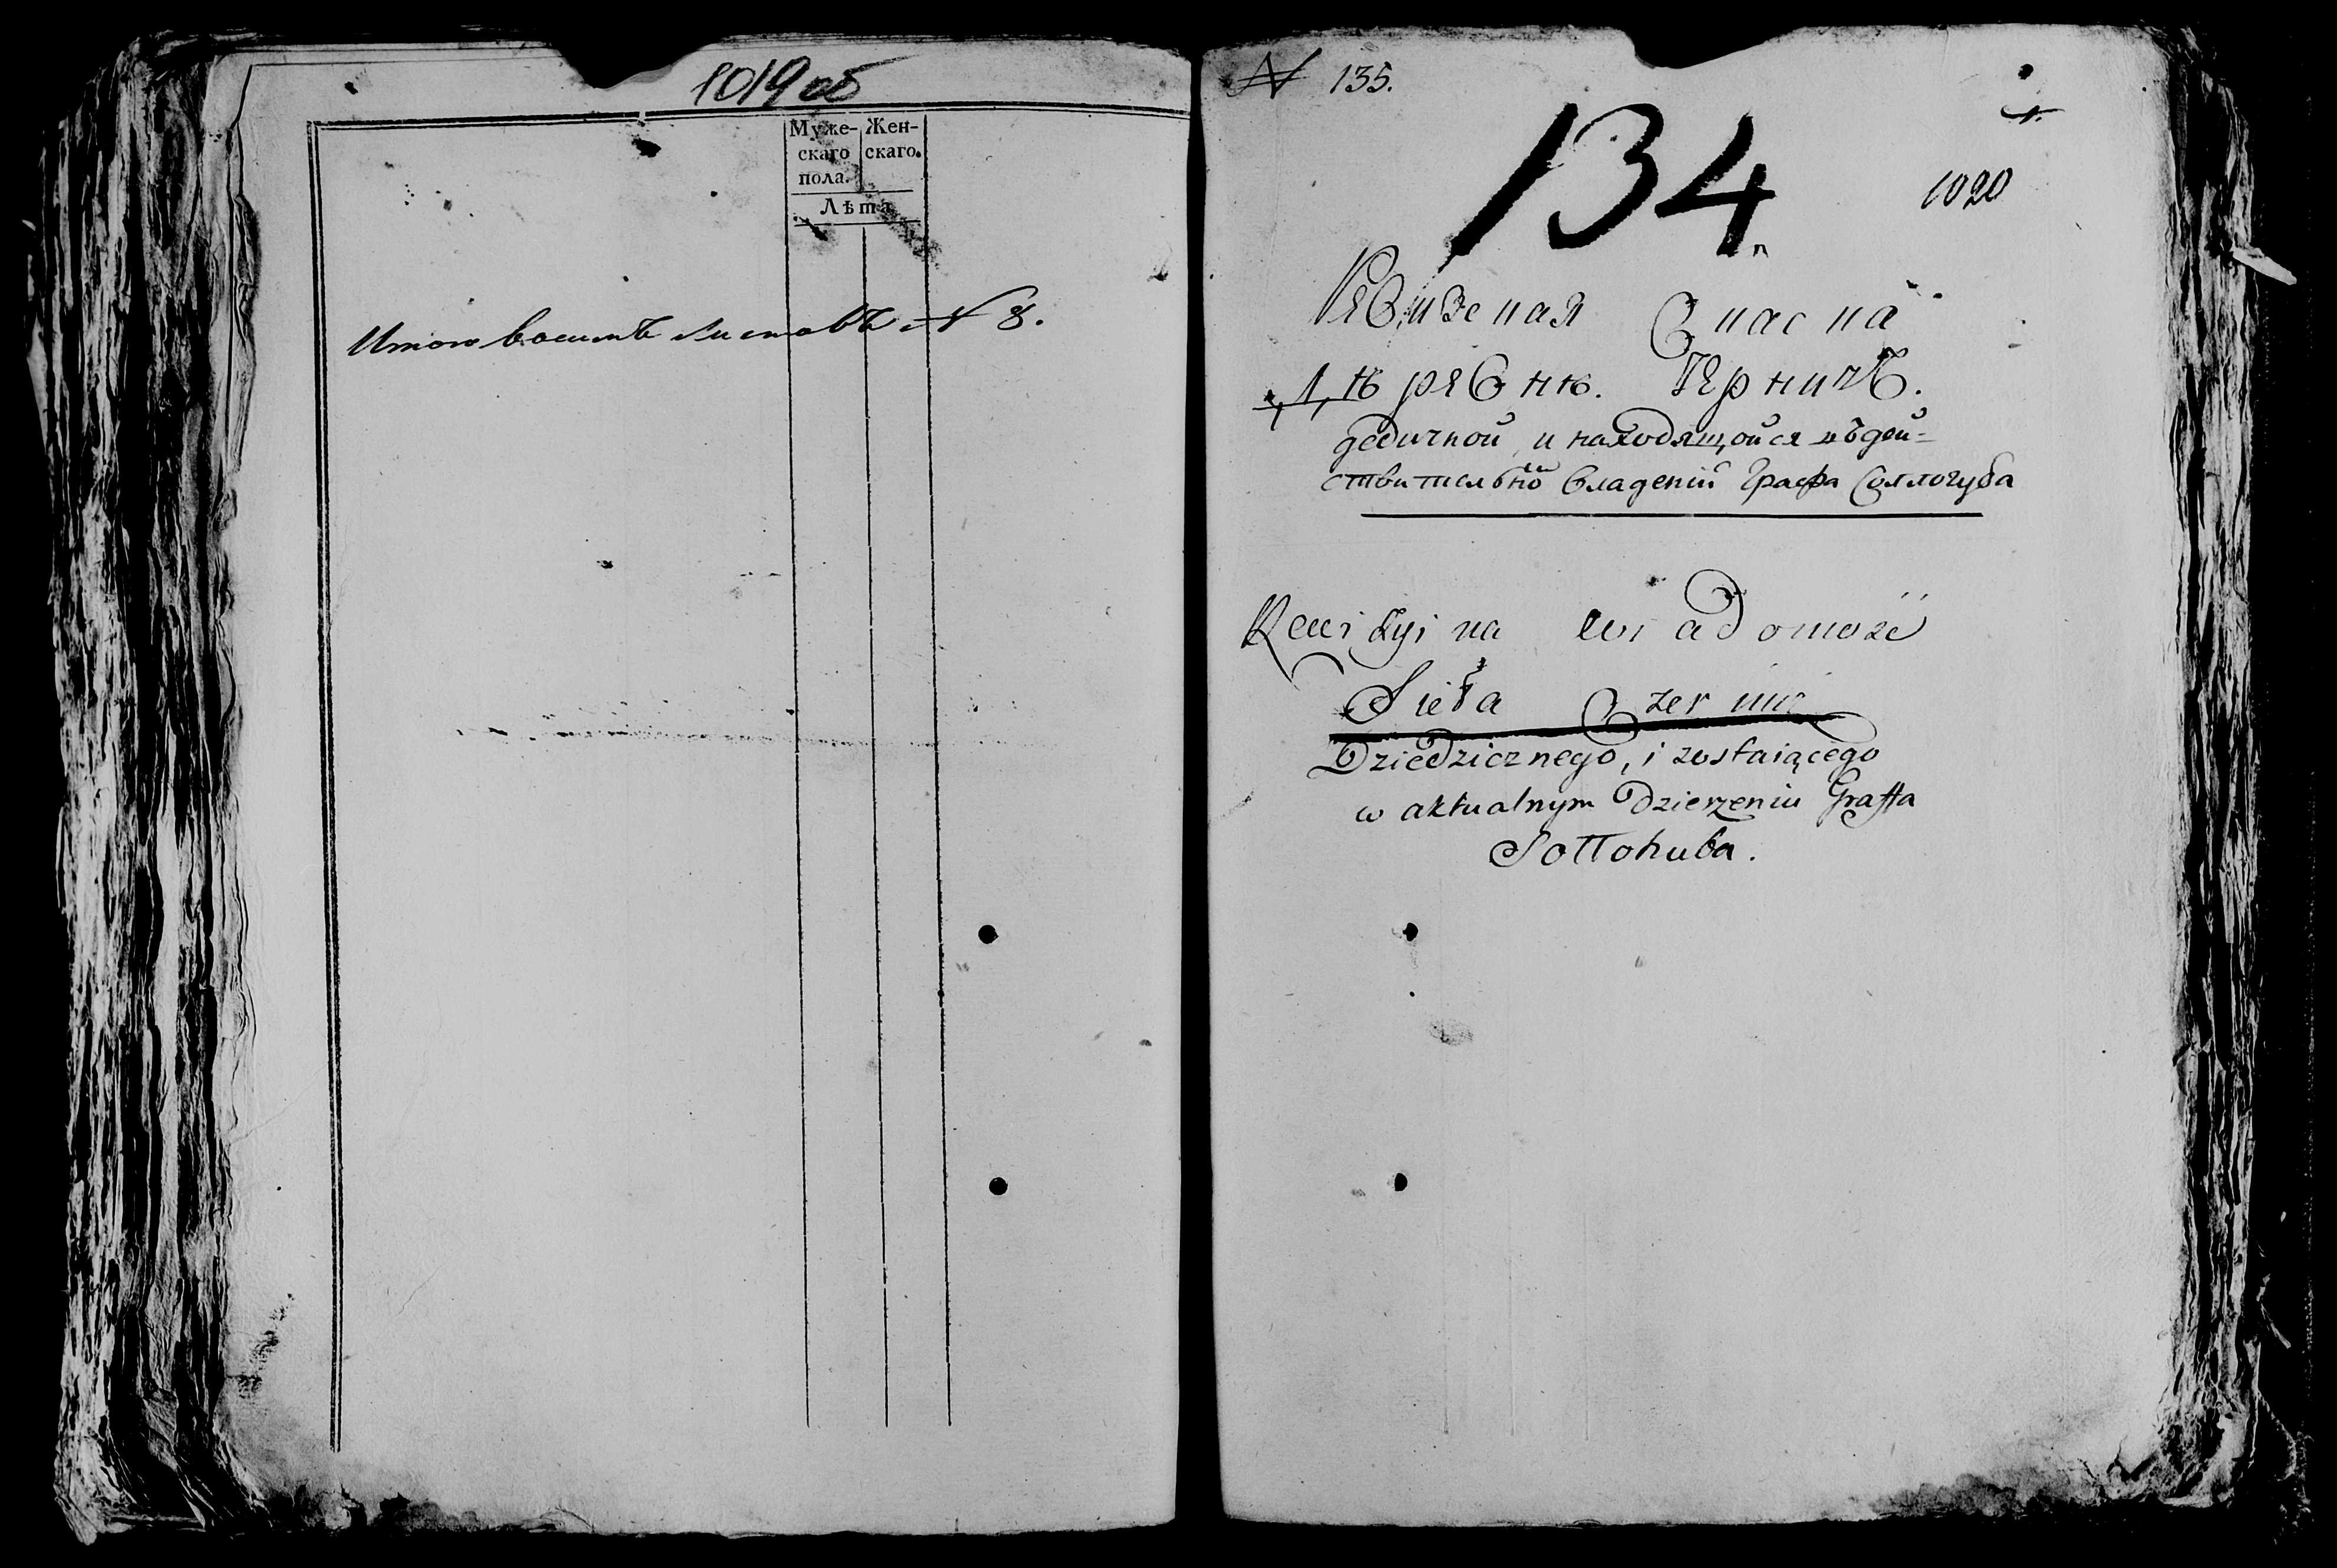 1019 об
Муже- Жен-
скаго скаго.
пола.
Лѣта
Итого восимъ листовъ № 8.
№ 135.
1.
134
1020
Ревизспая Спаспа
Дѣревнѣ. Черничъ.
дедичной и находящойся въ дей=
ствительной владении Графа Соллогуба
Rewizyina wiadomość
Sieła Czernic
Dziedzicznego, i zostaiącego
w aktualnym Dzierzeniu Graffa
Sołłohuba.